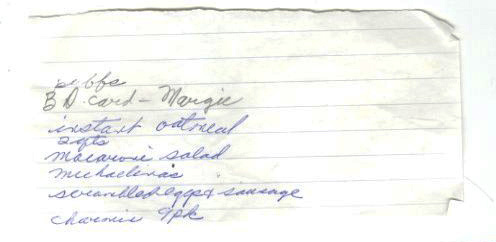 B D. card - Margie
instant oatmeal
2 qts
macaroni salad
michaelinas
scrambled eggs & sausage
charmin 9pk